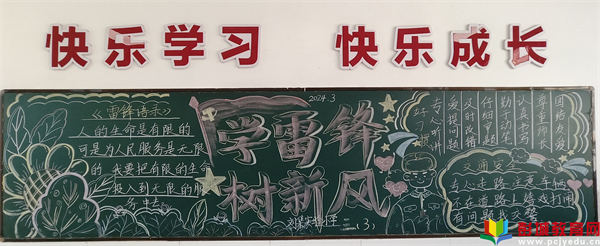 快乐学习 快乐成长
《雷锋语录》
人的生命是有限的
可是为人民服务是无限
的 我要把有限的生命
投入到无限的服
务中去
2024.3
学雷锋
树新风
(3)
团结友爱
尊重师长
认真书写
勤于动笔
仔细审题
及时改错
爱提问题
专心听讲
好
交通安
专心走路注意车辆
不在道路上嬉戏打闹
有问题找交警
教育网
www.pcjyedu.cn